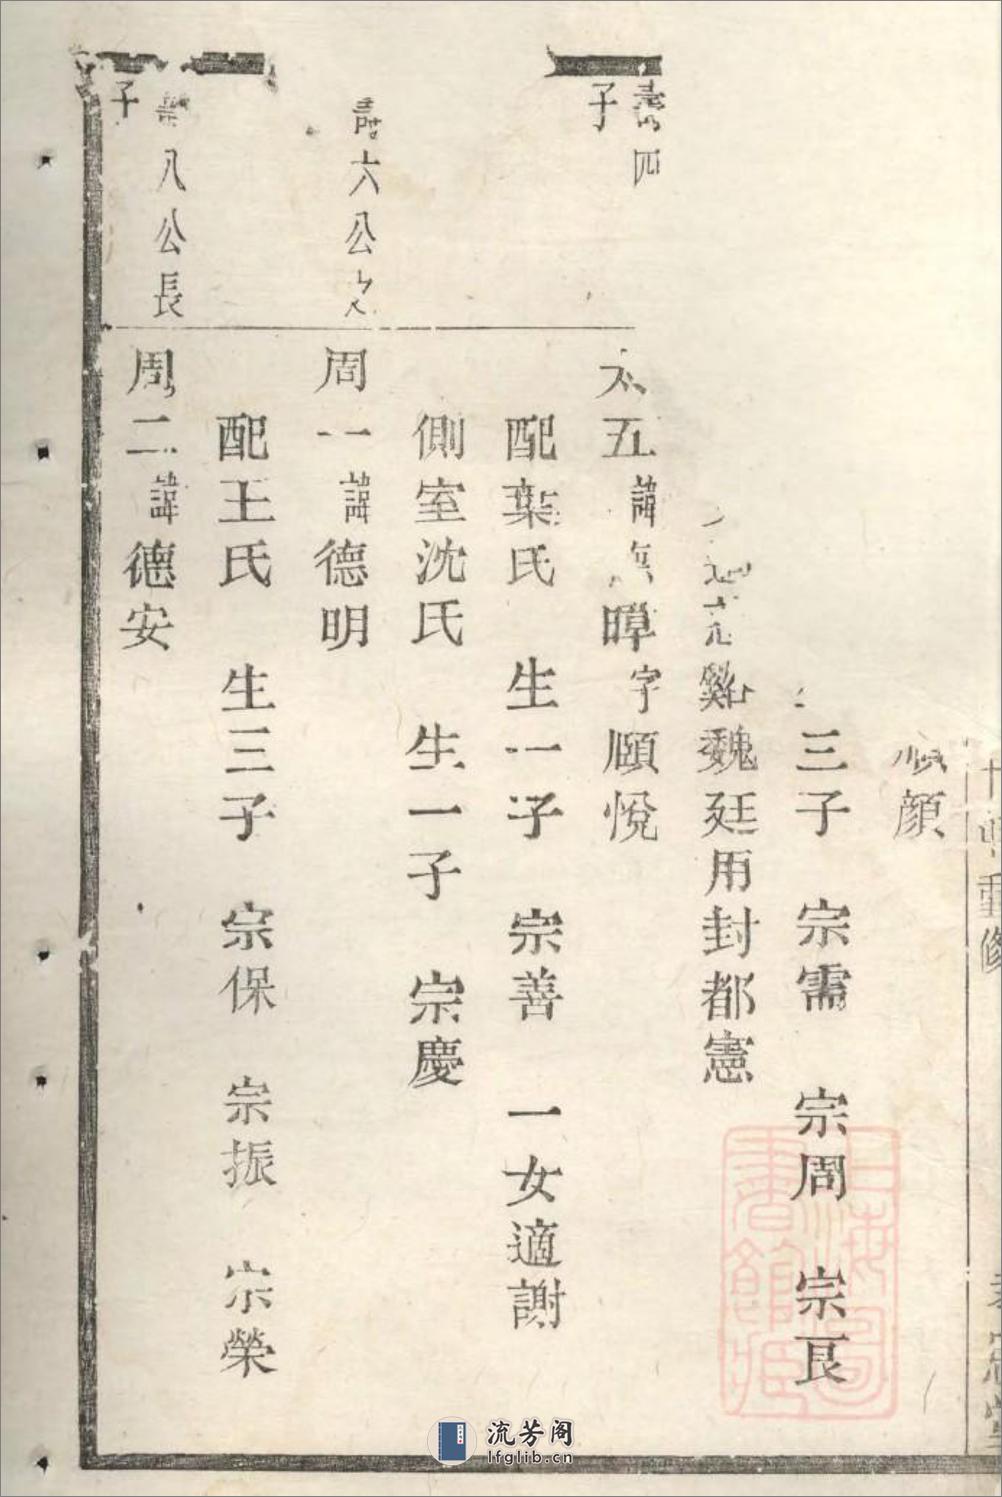 重修
顔
三子 宗需 宗周 宗良
魏廷用封都憲
壽四
子
太五諱 暲字頤悅
配葉氏 生一子 宗善 一女適謝
側室沈氏 生一子 宗慶
壽六公次
周一諱德明
配王氏 生三子 宗保 宗振 宗榮
八公長
子
周二諱德安
上海圖書館藏
流芳阁
lfglib.cn